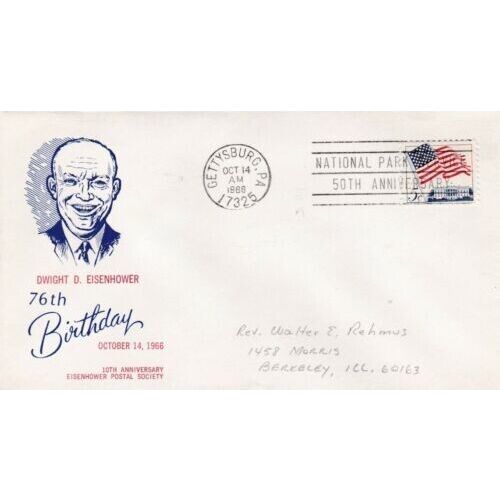 GETTYSBURG, PA
OCT 14
AM
1966
17325
NATIONAL PARK
50TH ANNIVERSARY
5c
DWIGHT D. EISENHOWER
76th
Birthday
OCTOBER 14, 1966
10TH ANNIVERSARY
EISENHOWER POSTAL SOCIETY
Rev. Walter E. Rehmus
1458 Morris
Berkeley, Ill. 60163